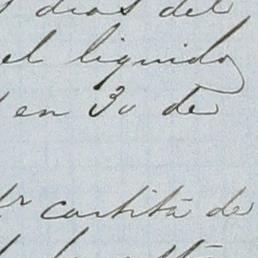 dias del
el liquido
en 30 de
cartita de